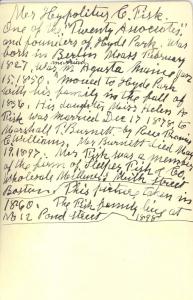 Mr Hyppolitus C. Fisk.
One of the Twenty Associates.
and founders of Hyde Park. Was
born in Boston Mass February
1827. was married in Augusta Maine Jan
15, 1850. Moved to Hyde Park
with his family in the fall of
1856. His daughter Miss Helen A
Fisk was married Dec 17 1878 to
Marshall F. Burnett by Rev Thomas
Williams, Mr Burnett died May
19. 1897. Mr Fisk was a member
of the firm of Fisk & Co,
wholesale Milliners Milk Street
Boston. This picture taken in
1860. The Fisk family live at
No 12 Pond Street 1898